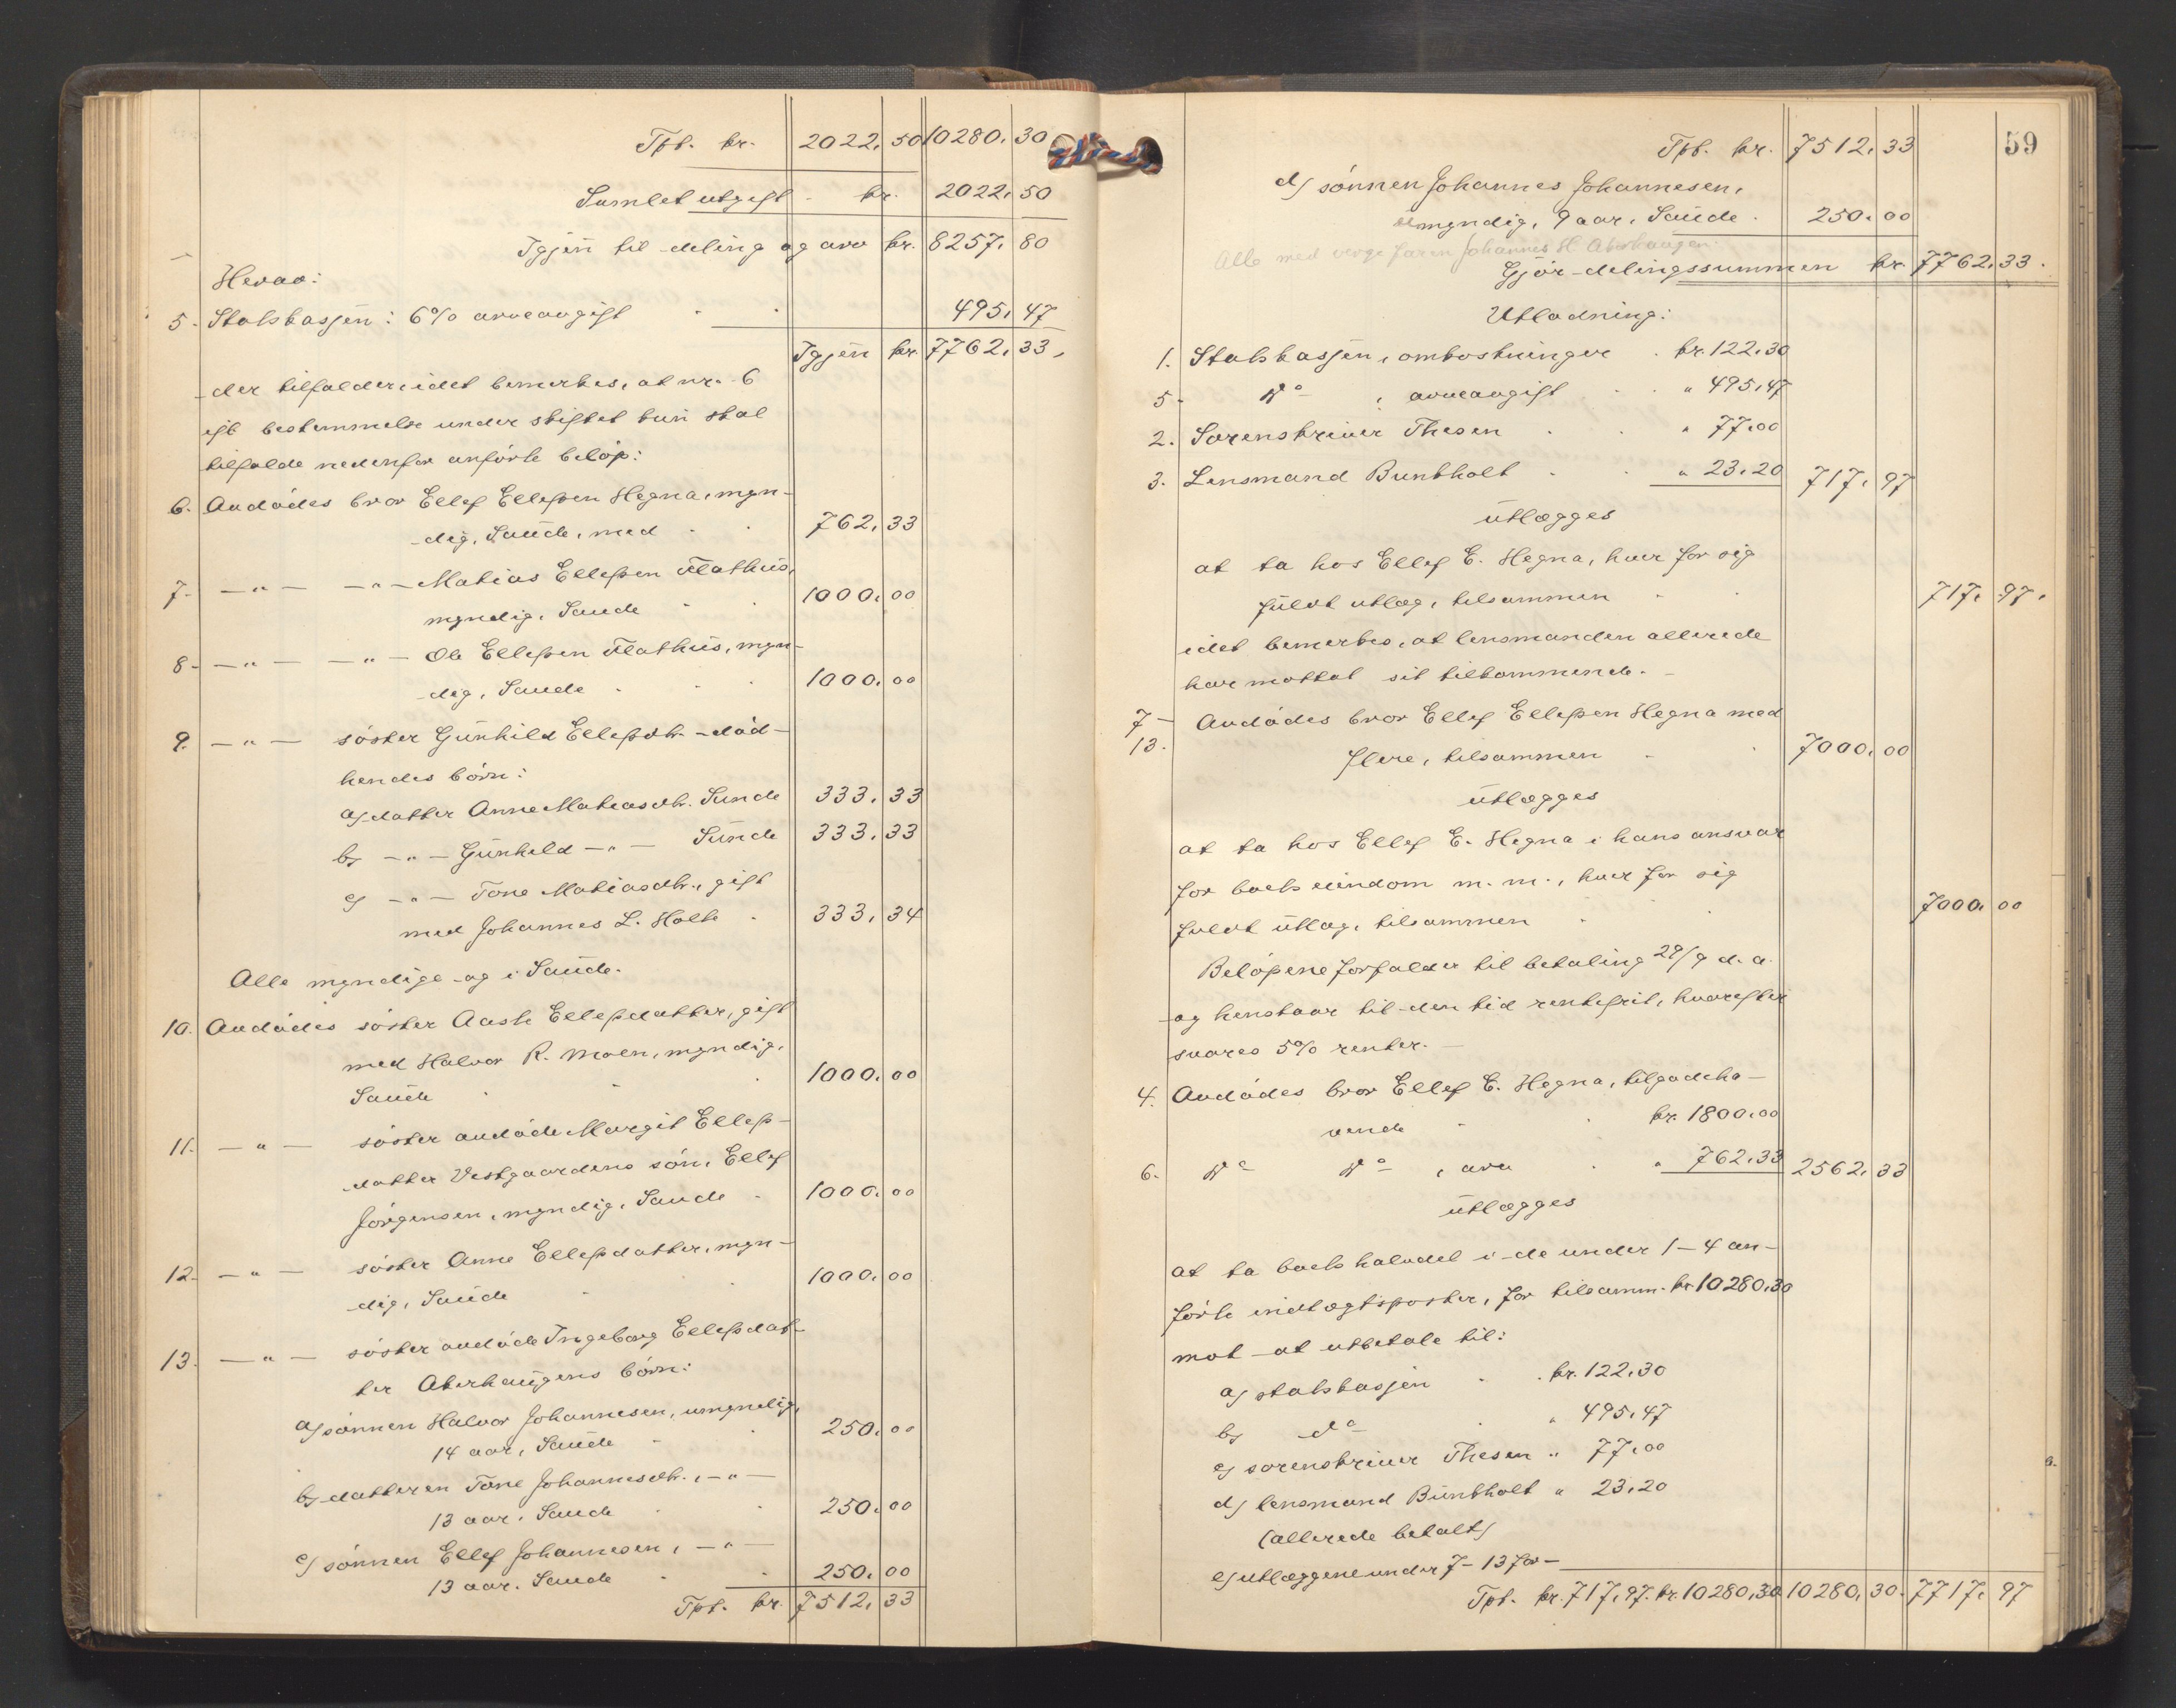 Tpt. kr. 2022,50 10280,30
Samlet utgift kr. 2022,50
Igjen til deling og arv kr. 8257,80
Herav:
5. Statskassen: 6% arveavgift 495,47
Igjen kr. 7762,33
der tilfalder, idet bemerkes, at nr. 6
eft. bestemmelse under skiftet kun skal
tilfalde nedenfor anførte beløp:
6. Avdødes bror Ellef Ellefsen Hegna, myn-
dig, Saude, med 762,33
7. —"— —"— Matias Ellefsen Flathus,
myndig, Saude 1000,00
8. —"— —"— Ole Ellefsen Flathus, myn-
dig, Saude 1000,00
9. —"— søster Gunhild Ellefsdtr. død –
hendes børn:
a) datter Anne Matiasdtr. Sunde 333,33
b) —"— Gunhild —"— Sunde 333,33
c) —"— Tone Matiasdtr., gift
med Johannes L. Holte 333,34
Alle myndige og i Saude.
10. Avdødes søster Aaste Ellefsdatter, gift
med Halvor R. Moen, myndig,
Saude 1000,00
11. —"— søster avdøde Margit Ellefs-
datter Vestgaardens søn, Ellef
Jørgensen, myndig, Saude 1000,00
12. —"— søster Anne Ellefsdatter, myn-
dig, Saude 1000,00
13. —"— søster avdøde Ingeborg Ellefsdat-
ter Aterhaugens børn:
a) sønnen Halvor Johannesen, umyndig,
14 aar, Saude 250,00
b) datteren Tone Johannesdtr., —"—
13 aar, Saude 250,00
c) sønnen Ellef Johannesen, —"—
13 aar, Saude 250,00
Tpt. kr. 7512,33
59
Tpt. kr. 7512,33
d) sønnen Johannes Johannesen,
umyndig, 9 aar, Saude 250,00
Alle med verge faren Johannes H. Aterhaugen.
Gjør delingssummen kr. 7762,33
Utlodning:
1. Statskassen, omkostninger kr. 122,30
5. do , arveavgift " 495,47
2. Sorenskriver Thesen " 77,00
3. Lensmand Buntholt " 23,20 717,97
utlægges
at ta hos Ellef E. Hegna, hver for sig
fuldt utlæg, tilsammen 717,97
idet bemerkes, at lensmanden allerede
har mottat sit tilkommende.
7–
13. Avdødes bror Ellef Ellefsen Hegna med
flere, tilsammen 7000,00
utlægges
at ta hos Ellef E. Hegna i hans ansvar
for boets eiendom m. m., hver for sig
fuldt utlæg, tilsammen 7000,00
Beløpene forfalder til betaling 29/9 d. a.
og henstaar til den tid rentefrit, hvorefter
svares 5% renter.
4. Avdødes bror Ellef E. Hegna, tilgodeha-
vende kr. 1800,00
6. do do , arv " 762,33 2562,33
utlægges
at ta boets halvdel i de under 1–4 an-
førte indtægtsposter, for tilsamm. kr. 10280,30
mot at utbetale til:
a) statskassen kr. 122,30
b) do " 495,47
c) sorenskriver Thesen " 77,00
d) lensmand Buntholt " 23,20
(allerede betalt)
e) utlæggene under 7–13 for —
Tpt. kr. 717,97. kr. 10280,30 10280,30 7717,97